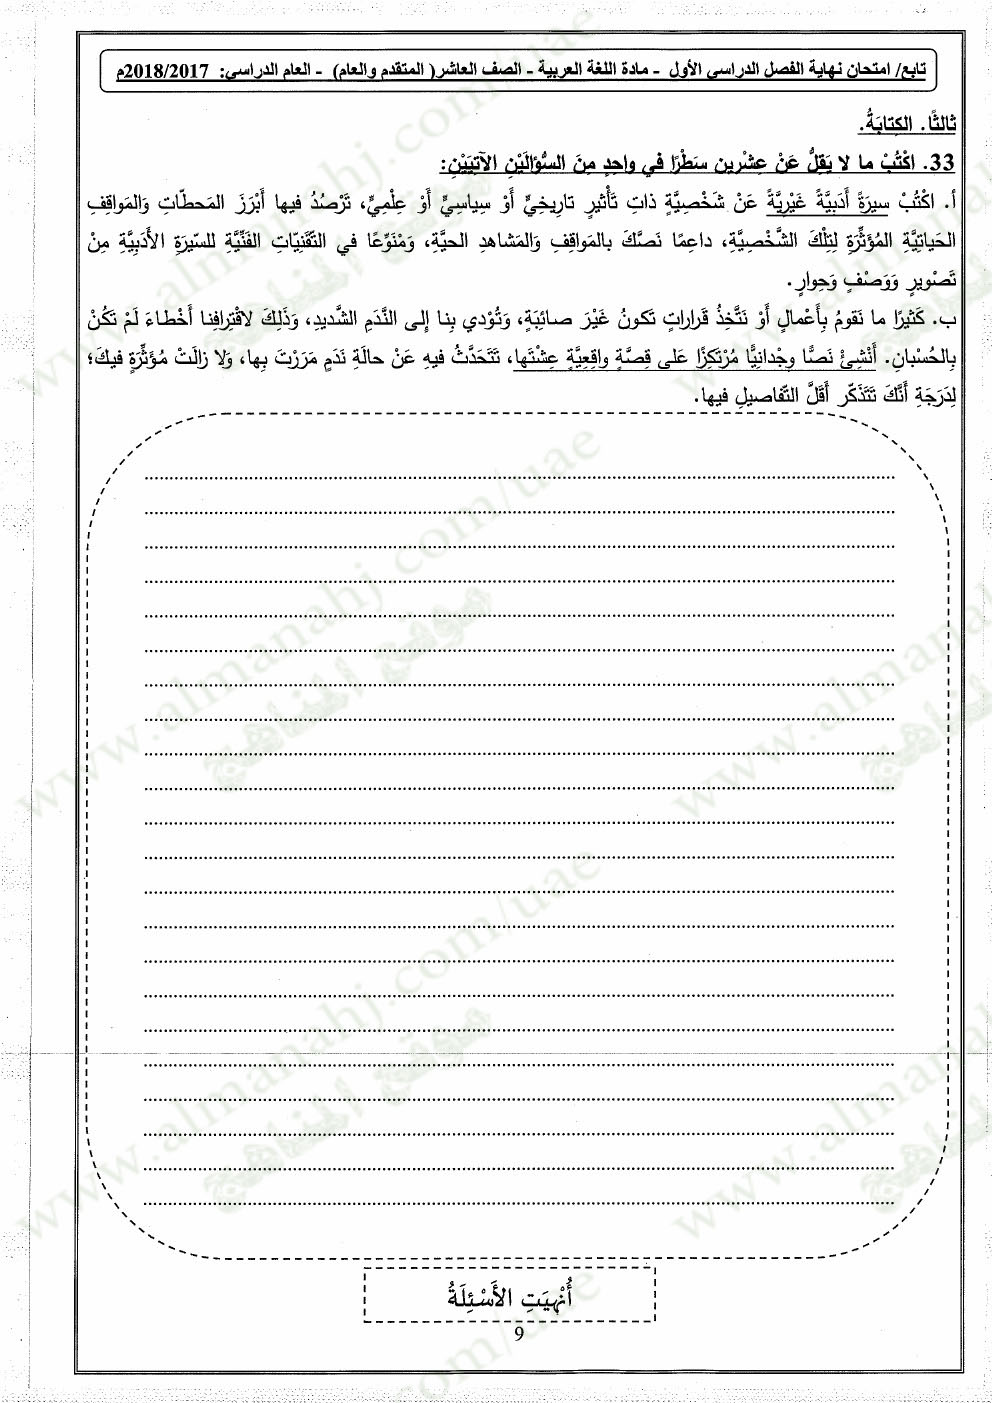 تابع/ امتحان نهاية الفصل الدراسي الأول - مادة اللغة العربية - الصف العاشر( المتقدم والعام) - العام الدراسي: 2018/2017م
ثالثًا. الكِتابَةُ.
33. اكْتُبْ ما لا يَقِلُّ عَنْ عِشْرين سَطْرًا في واحِدٍ مِنَ السُّؤالَيْنِ الآتِيَيْنِ:
أ. اكْتُبْ سيرَةً أَدَبيَّةً غَيْرِيَّةً عَنْ شَخْصِيَّةٍ ذاتِ تَأْثيرٍ تاريخِيٍّ أَوْ سِياسِيٍّ أَوْ عِلْمِيٍّ، تَرْصُدُ فيها أَبْرَزَ المَحطّاتِ وَالمَواقِفِ
الحَياتِيَّةِ المُؤَثِّرَةِ لِتِلْكَ الشَّخْصِيَّةِ، داعِمًا نَصَّكَ بالمَواقِفِ وَالمَشاهدِ الحيَّةِ، وَمُنَوِّعًا في التِّقَنِيّاتِ الفَنِّيَّةِ للسّيرَةِ الأَدَبِيَّةِ مِنْ
تَصْويرٍ وَوَصْفٍ وَحِوارٍ.
ب. كَثيرًا ما نَقومُ بِأَعْمالٍ أَوْ نَتَّخِذُ قَراراتٍ تَكونُ غَيْرَ صائِبَةٍ، وَتُوْدي بِنا إِلى النَّدَمِ الشَّديدِ، وَذَلِكَ لاقْتِرافِنا أَخْطاءً لَمْ تَكُنْ
بِالحُسْبانِ. أَنْشِئْ نَصًّا وِجْدانِيًّا مُرْتَكِزًا عَلى قِصَّةٍ واقِعِيَّةٍ عِشْتَها، تَتَحَدَّثُ فيهِ عَنْ حالَةِ نَدَمٍ مَرَرْتَ بِها، وَلا زالَتْ مُؤَثِّرَةٍ فيكَ؛
لِدَرَجَةِ أَنَّكَ تَتَذَكّر أَقَلَّ التَّفاصيلِ فيها.
أُنْهِيَتِ الأَسْئِلَةُ
9
www.almanahj.com/uae
موقع المناهج